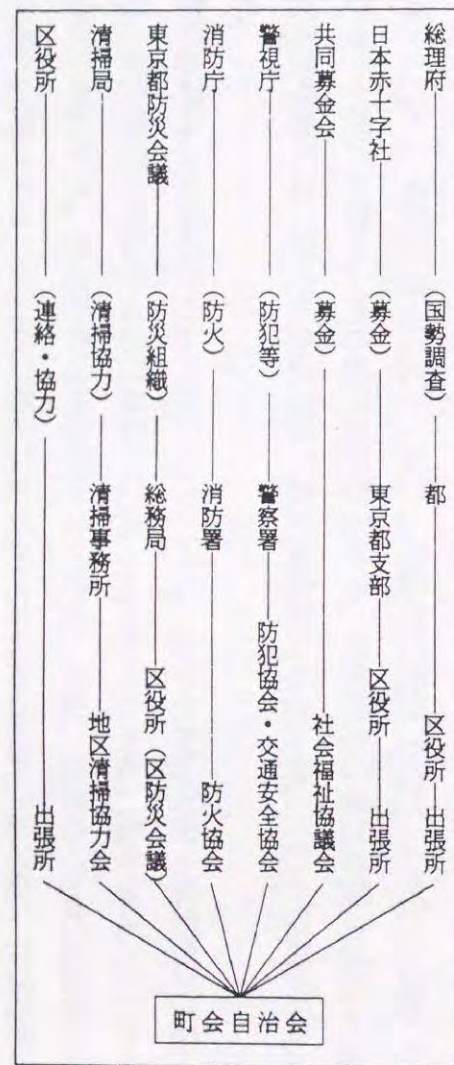 総理府 （国勢調査） 都 区役所 出張所
日本赤十字社 （募金） 東京都支部 区役所 出張所
共同募金会 （募金） 社会福祉協議会
警視庁 （防犯等） 警察署 防犯協会・交通安全協会
消防庁 （防火） 消防署 防火協会
東京都防災会議 （防災組織） 総務局 区役所（区防災会議）
清掃局 （清掃協力） 清掃事務所 地区清掃協力会
区役所 （連絡・協力） 出張所
町会自治会